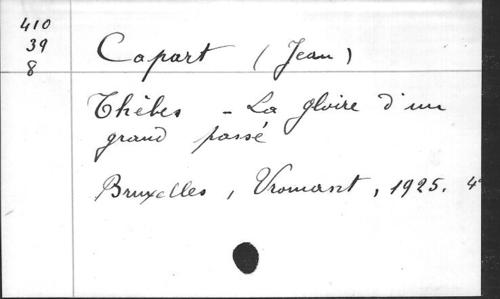 410
39
8
Capart (Jean)
Thèbes - La gloire d'un
grand passé
Bruxelles, Vromant, 1925. 4°